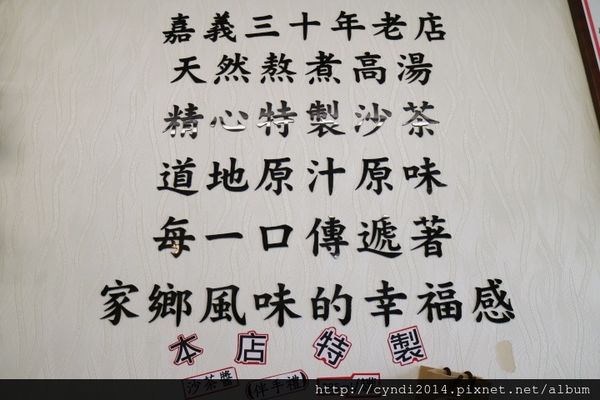 嘉義三十年老店
天然熬煮高湯
精心特製沙茶
道地原汁原味
每一口傳遞著
家鄉風味的幸福感
本店特製
沙茶醬 (伴手禮)
http://cyndi2014.pixnet.net/album